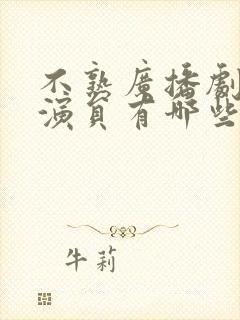 不熟廣播劇
演員有哪些
牛莉